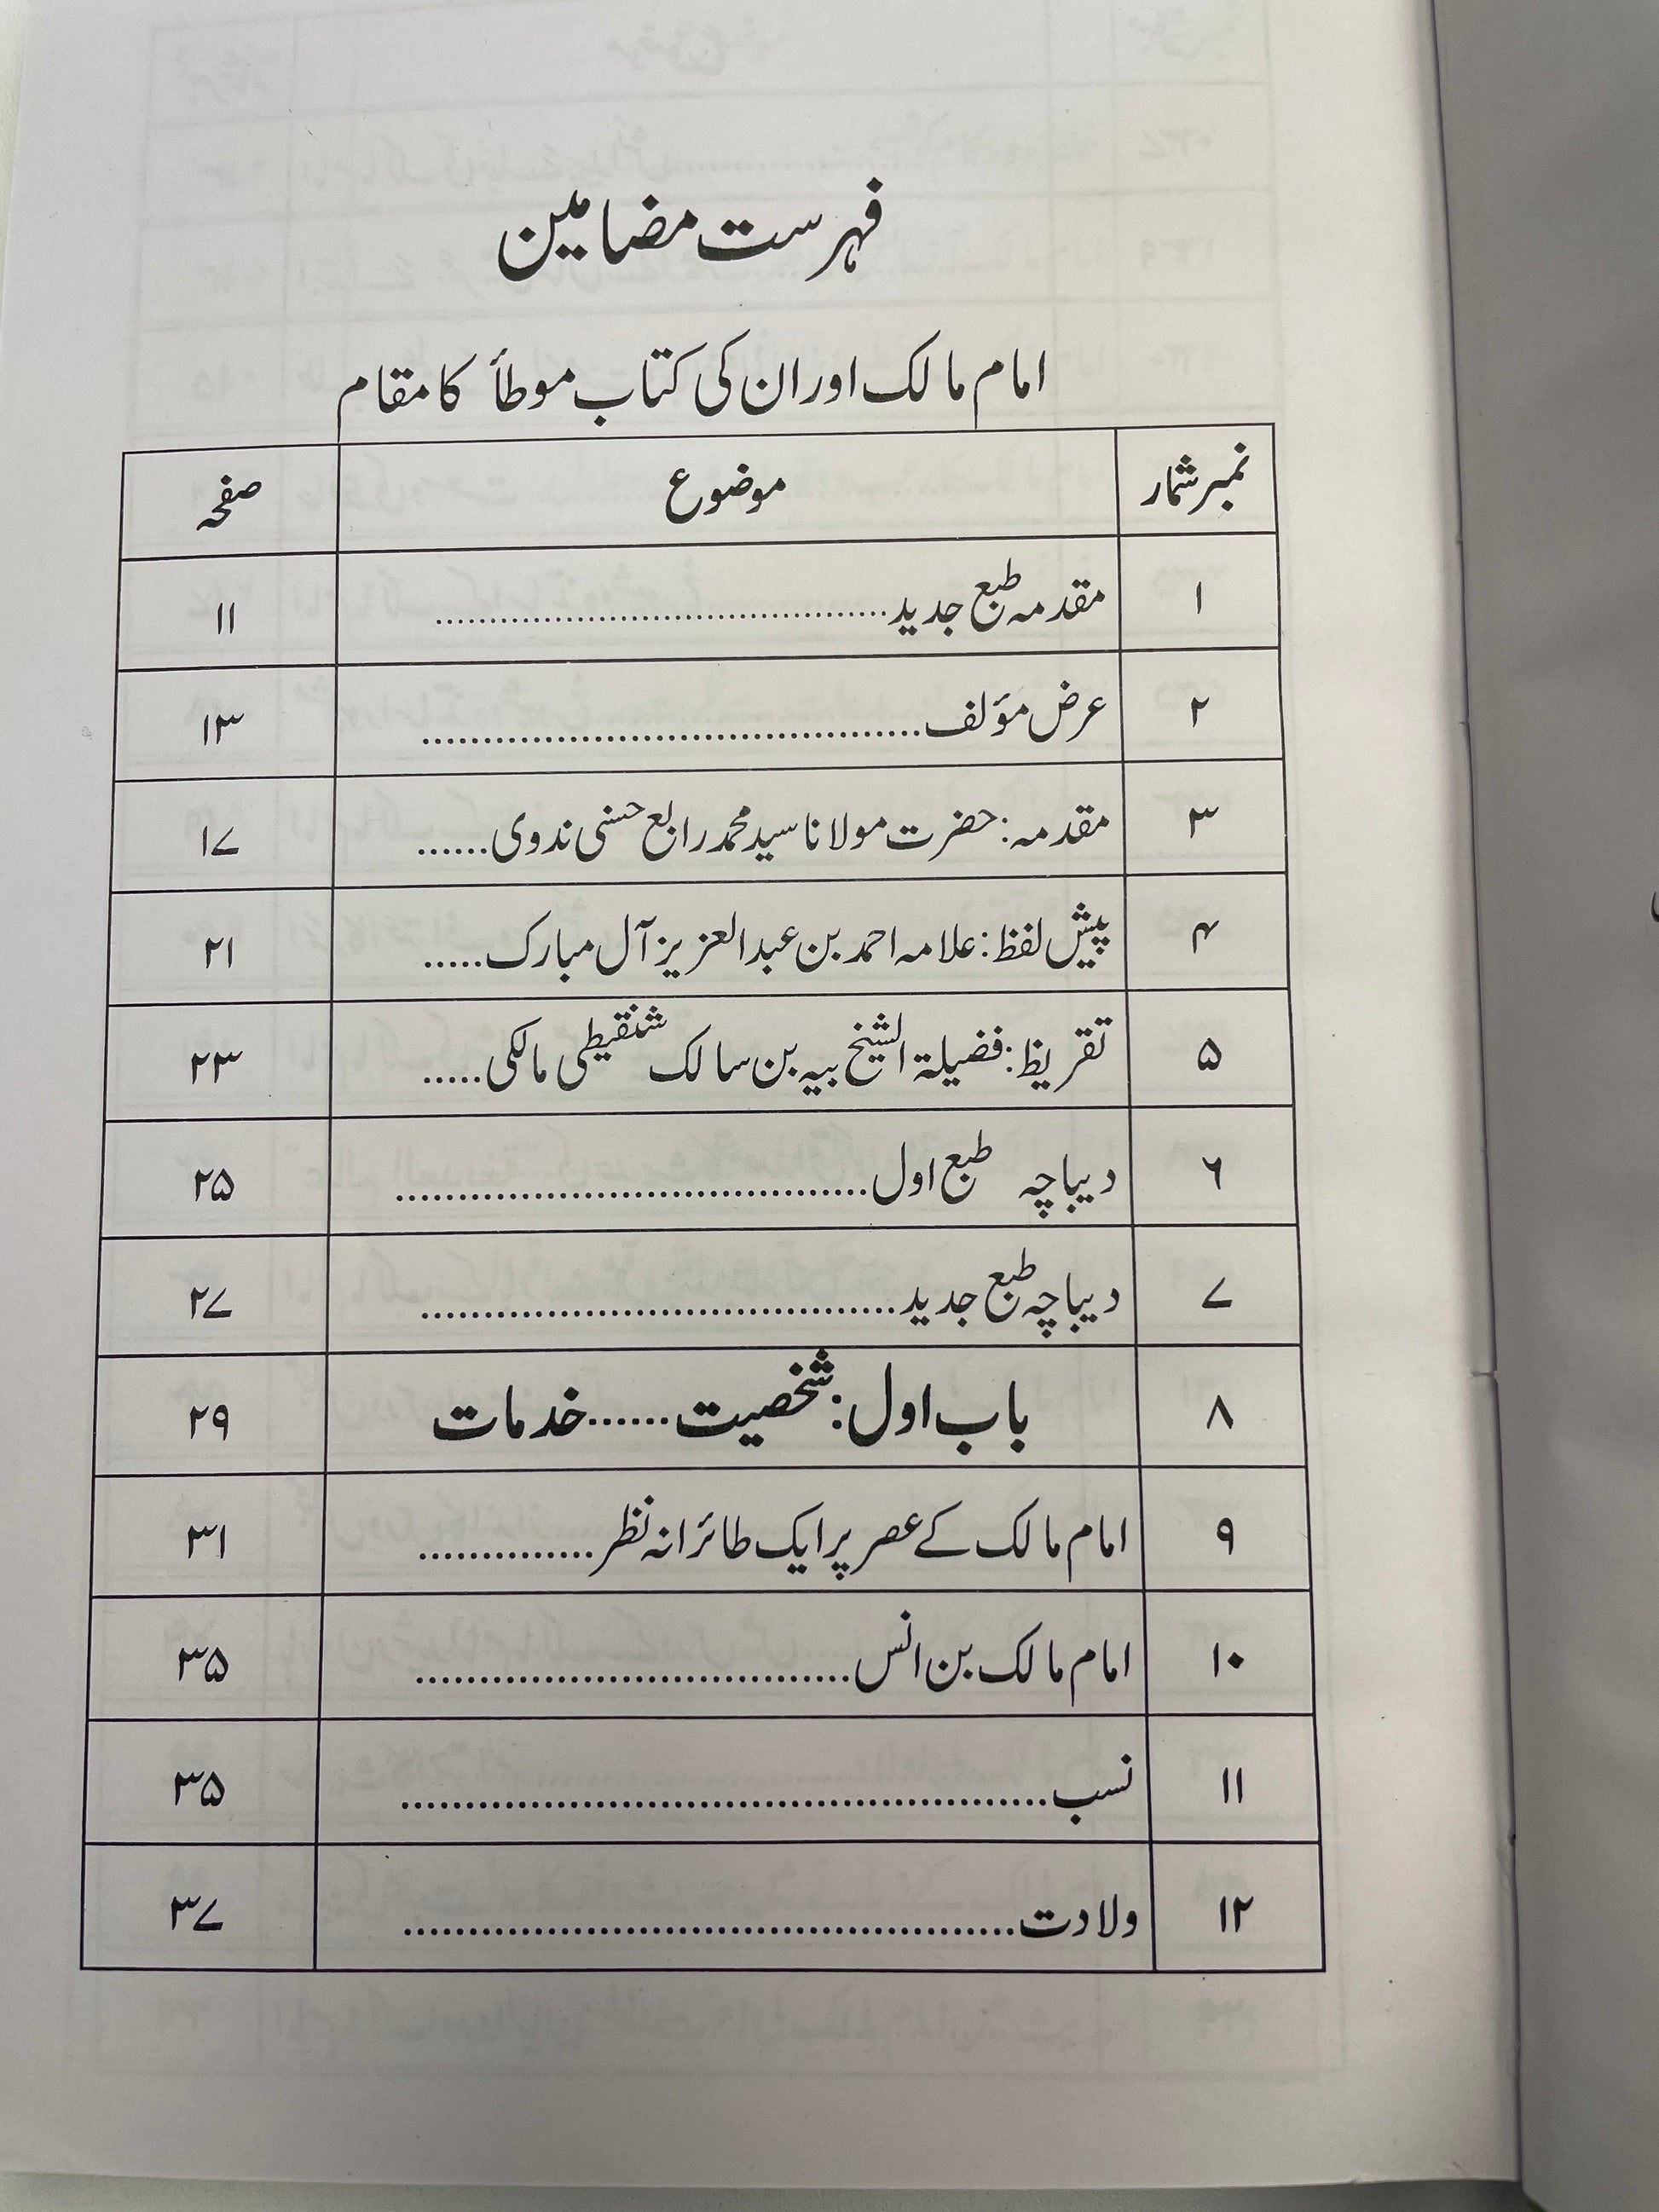 فہرست مضامین
امام مالک اور ان کی کتاب موطأ کا مقام
نمبر شمار موضوع صفحہ
۱ مقدمہ طبع جدید........................................ ۱۱
۲ عرض مؤلف........................................ ۱۳
۳ مقدمہ: حضرت مولانا سید محمد رابع حسنی ندوی...... ۱۷
۴ پیش لفظ: علامہ احمد بن عبدالعزیز آل مبارک..... ۲۱
۵ تقریظ: فضیلۃ الشیخ بیہ بن سالک شنقیطی مالکی..... ۲۳
۶ دیباچہ طبع اول........................................ ۲۵
۷ دیباچہ طبع جدید........................................ ۲۷
۸ باب اول: شخصیت......خدمات ۲۹
۹ امام مالک کے عصر پر ایک طائرانہ نظر............... ۳۱
۱۰ امام مالک بن انس................................... ۳۵
۱۱ نسب.................................................. ۳۵
۱۲ ولادت............................................... ۳۷